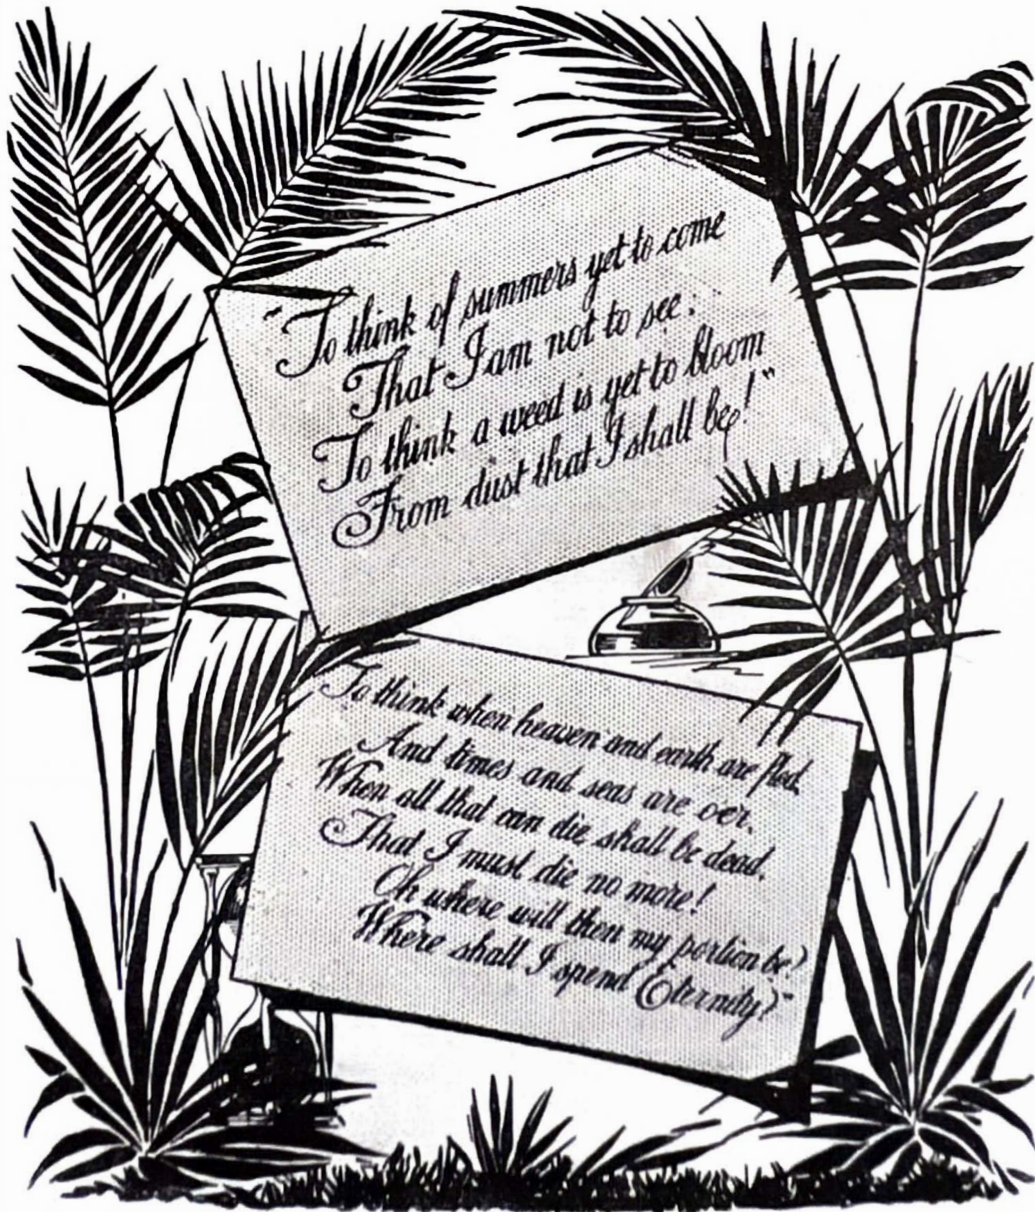 "To think of summers yet to come
That I am not to see:
To think a weed is yet to bloom
From dust that I shall be!"
To think when heaven and earth are fled,
And times and seas are oer,
When all that can die shall be dead,
That I must die no more!
Oh where will then my portion be?
Where shall I spend Eternity?"